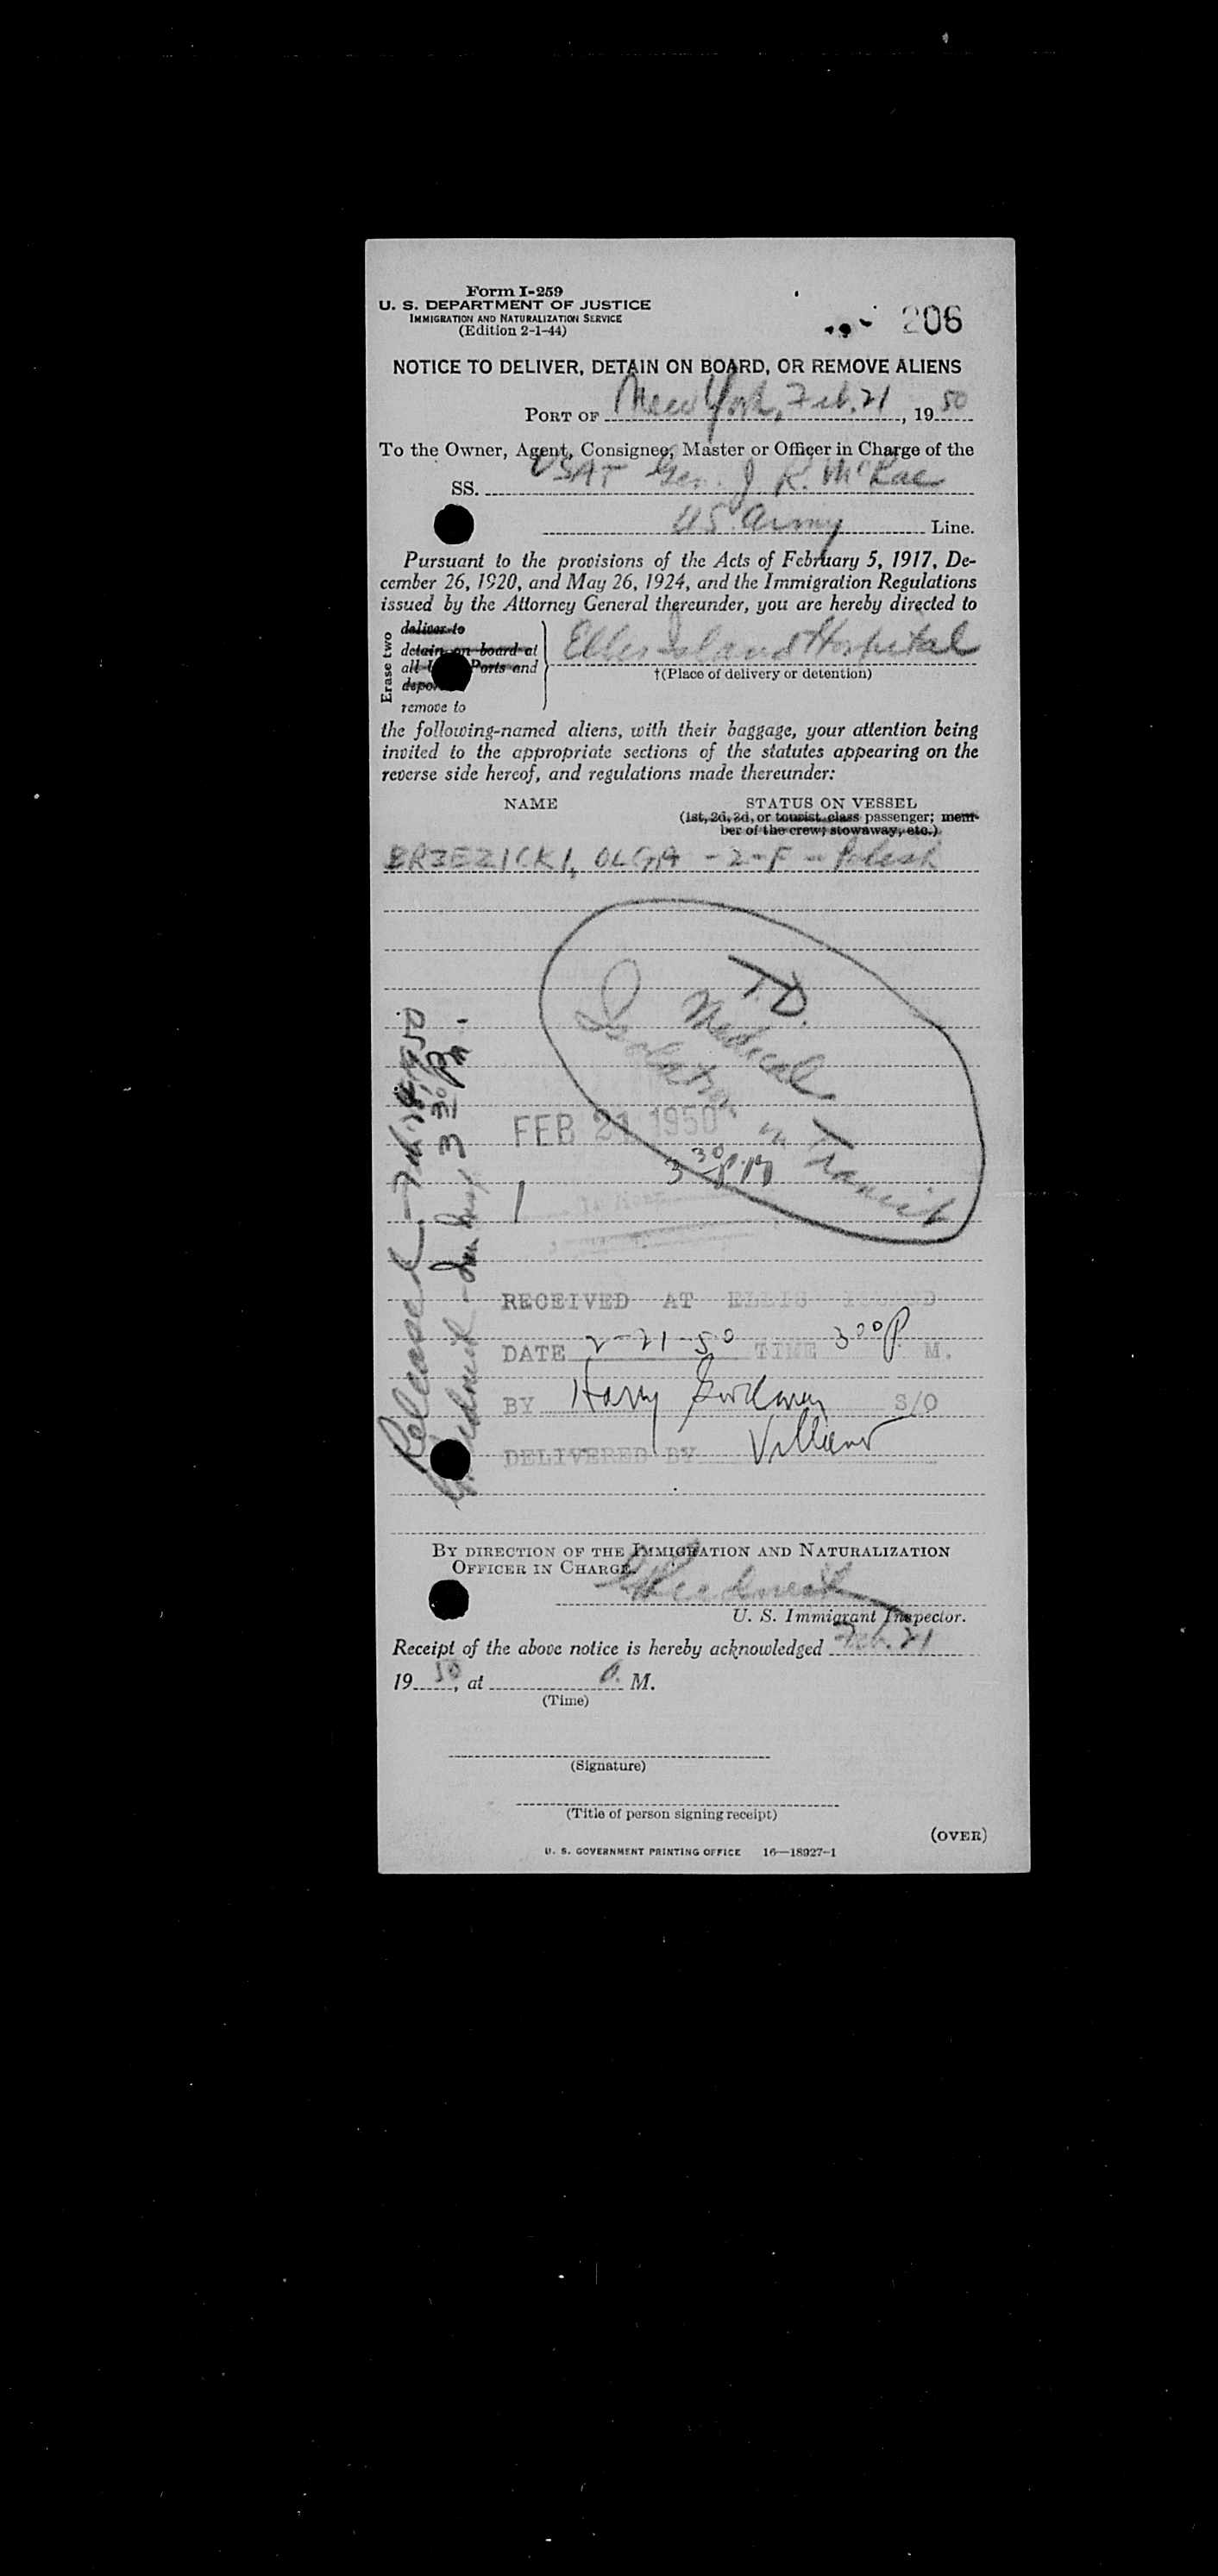 Form I-259
U. S. DEPARTMENT OF JUSTICE
IMMIGRATION AND NATURALIZATION SERVICE
(Edition 2-1-44)
206
NOTICE TO DELIVER, DETAIN ON BOARD, OR REMOVE ALIENS
PORT OF New York, Feb. 21, 1950
To the Owner, Agent, Consignee, Master or Officer in Charge of the
SS. USAT Gen. J R. McRae
US Army Line.
Pursuant to the provisions of the Acts of February 5, 1917, De-
cember 26, 1920, and May 26, 1924, and the Immigration Regulations
issued by the Attorney General thereunder, you are hereby directed to
Erase two
deliver to
detain on board at
all Ports and
remove to
Ellis Island Hospital
†(Place of delivery or detention)
the following-named aliens, with their baggage, your attention being
invited to the appropriate sections of the statutes appearing on the
reverse side hereof, and regulations made thereunder:
NAME
STATUS ON VESSEL
(1st, 2d, 3d, or tourist class passenger; mem-
ber of the crew; stowaway, etc.)
BRZEZICKI, OLGA - 2 - F - Polish
T.D.
Medical
Isolation in Transit
FEB 21 1950
3 30 P.M
1
Released - 1950
3 30 PM.
RECEIVED AT ELLIS ISLAND
DATE 2-21-50 TIME 3 00 P. M.
BY Harry S/O
DELIVERED BY
BY DIRECTION OF THE IMMIGRATION AND NATURALIZATION
OFFICER IN CHARGE.
U. S. Immigrant Inspector.
Receipt of the above notice is hereby acknowledged Feb. 21
1950, at M.
(Time)
(Signature)
(Title of person signing receipt)
(OVER)
U. S. GOVERNMENT PRINTING OFFICE 16—18927-1